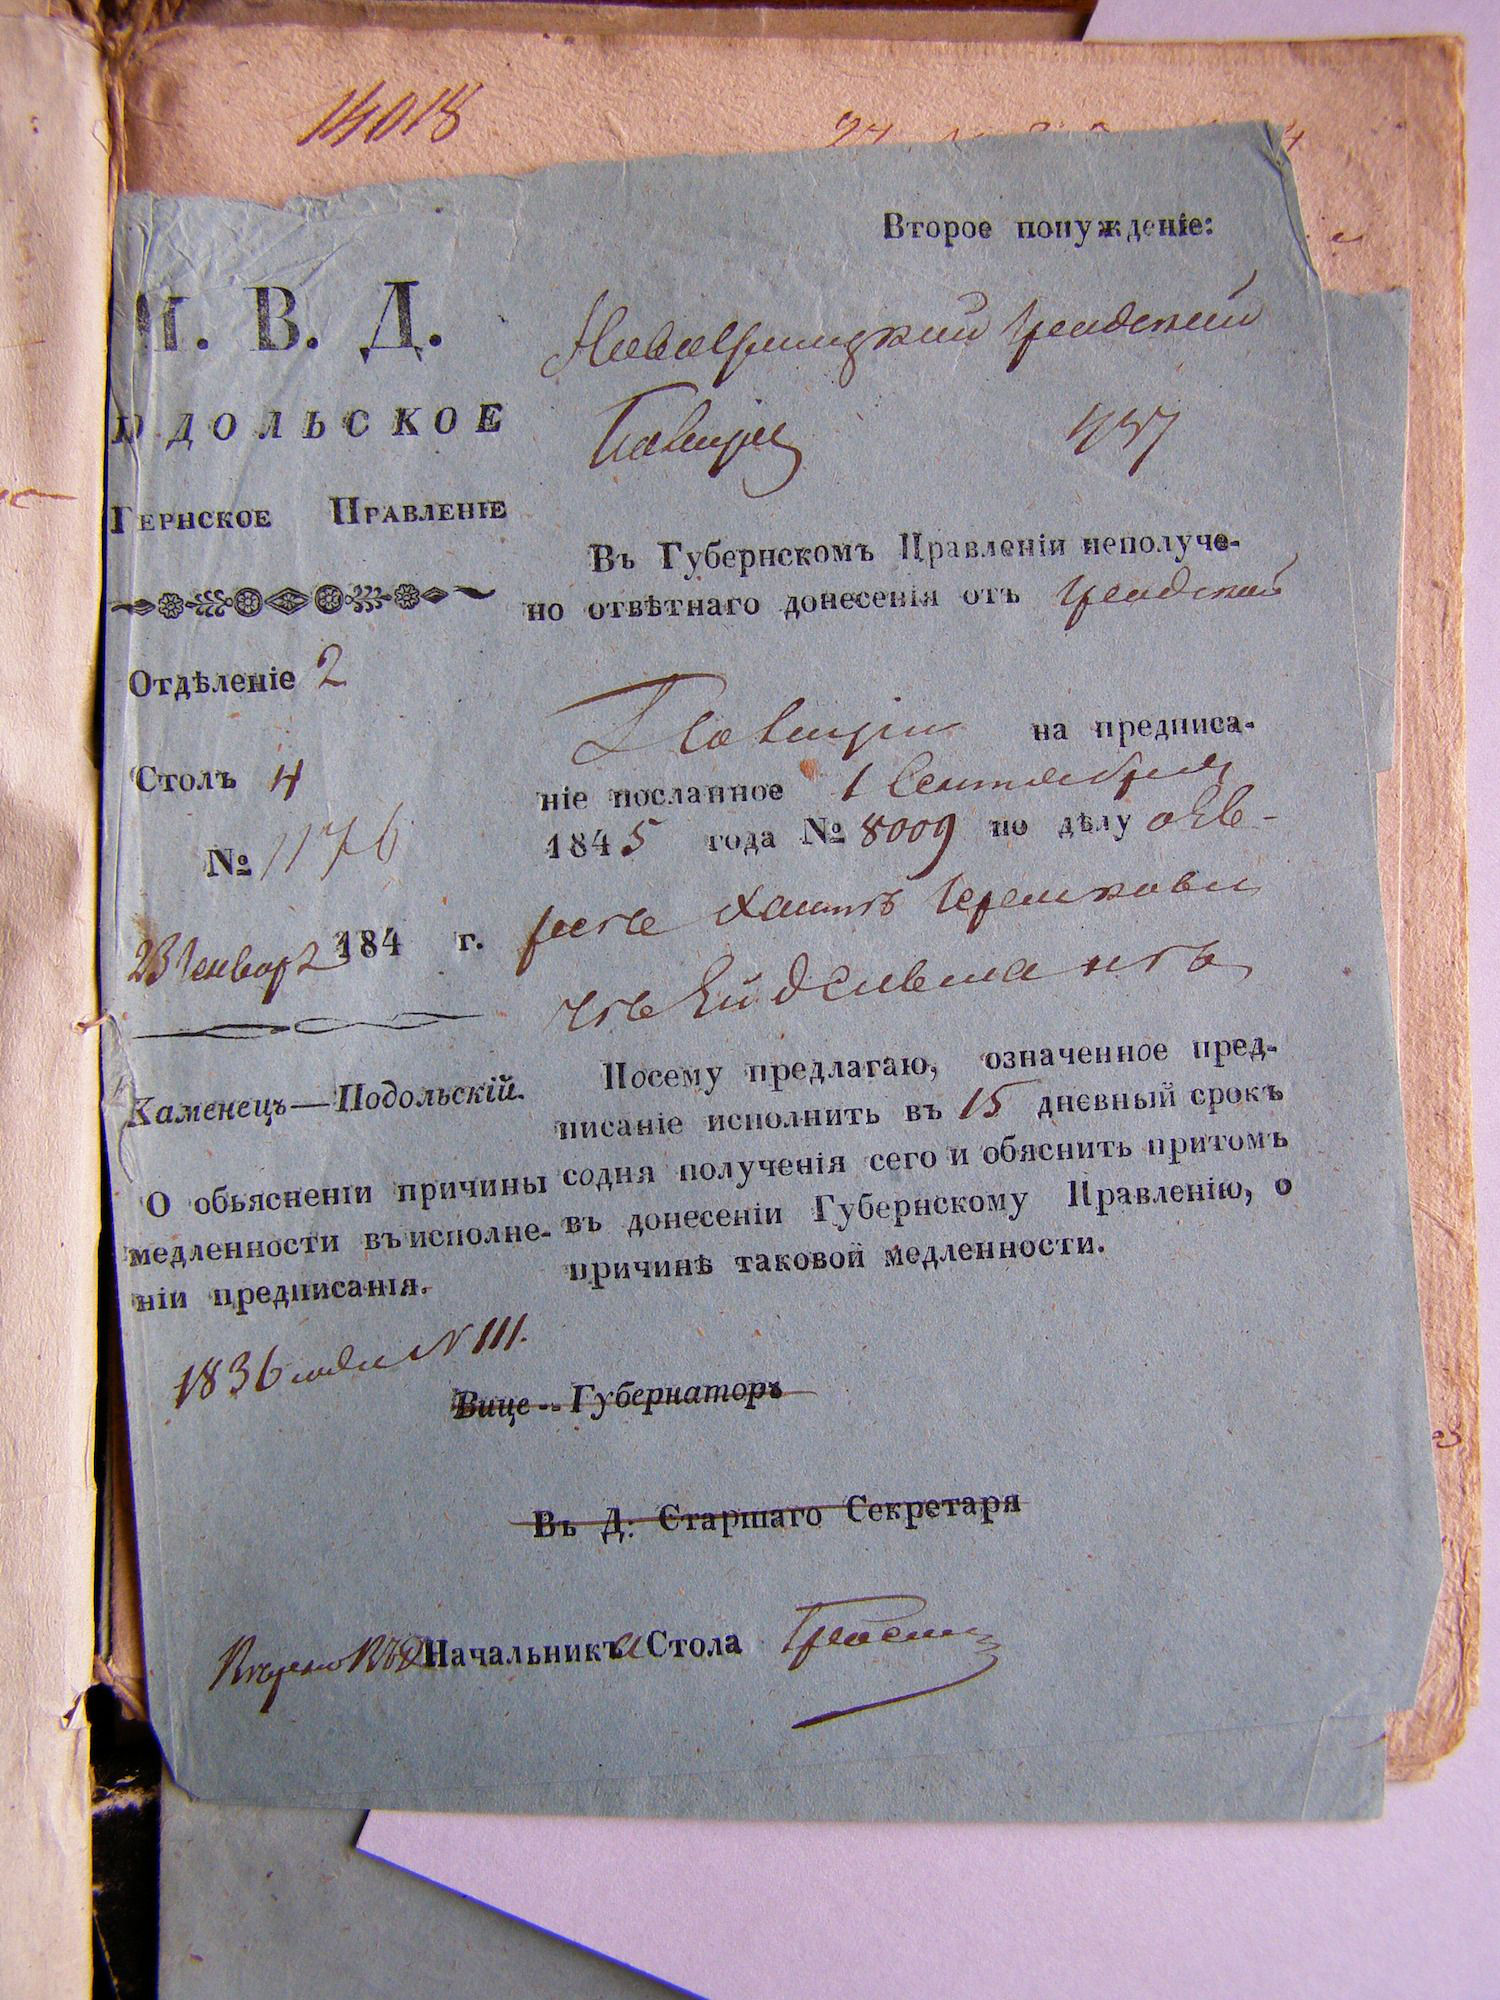 14018
Второе понуждение:
М. В. Д.
ОДОЛЬСКОЕ
ГЕРНСКОЕ ПРАВЛЕНІЕ
Отдѣленіе 2
Столъ 4
№ 1176
23 Генваря 184 г.
Каменецъ—Подольскій.
О обьясненіи причины
медленности въ исполне-
ніи предписанія.
1836 года N 111.
Градской
Полиціи
Въ Губернскомъ Правленіи неполуче-
но отвѣтнаго донесенія отъ Градской
Полиціи на предписа-
ніе посланное 1 Сентября
1845 года № 8009 по дѣлу о Ев-
реѣ Хаимѣ
Посему предлагаю, означенное пред-
писаніе исполнить въ 15 дневный срокъ
содня полученія сего и обяснить притомъ
въ донесеніи Губернскому Правленію, о
причинѣ таковой медленности.
Вице--Губернаторъ
Въ Д: Старшаго Секретаря
Начальника Стола